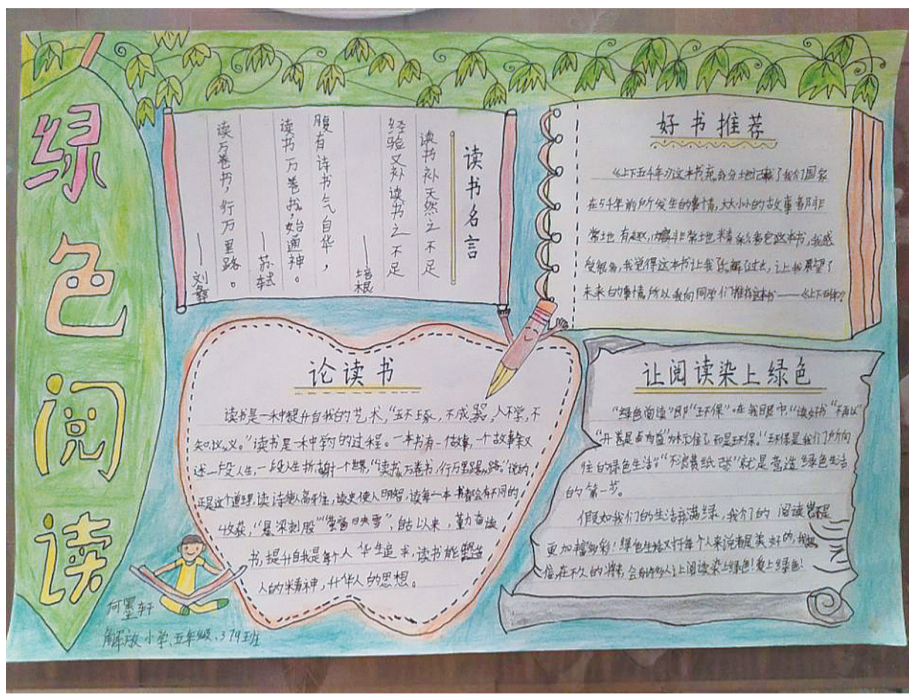 绿色阅读
读书名言
读书补天然之不足
经验又补读书之不足
——培根
腹有诗书气自华，
读书万卷始通神。
——苏轼
读万卷书，行万里路。
——刘彝
好书推荐
《上下五千年》这本书充分土地记载了我们国家
在5千年前所发生的事情，大大小小的故事都非
常地有趣，内容非常地精彩，看完这本书，我感
受很多，我觉得这本书让我了解了过去，让我展望了
未来的事情，所以我向同学们推荐这本书——《上下五千年》
论读书
读书是一种提升自我的艺术，“玉不琢，不成器，人不学，不
知义。”读书是一种学习的过程。一本书有一个故事，一个故事叙
述一段人生，一段人生折射一个世界，“读万卷书，行万里路”说的
正是这个道理。读诗使人高雅，读史使人明智，读每一本书都会有不同的
收获，“悬梁刺股”“萤窗映雪”，自古以来，勤奋读
书，提升自我是每个人毕生追求，读书能塑造
人的精神，升华人的思想。
让阅读染上绿色
“绿色阅读”即“环保”。在我眼中“读好书”
“环保是我们所向
往的绿色生活。”“不浪费纸张”就是营造绿色生活
的第一步。
假如我们的生活充满绿，我们的阅读岂不是
更加精彩！绿色生活对于每个人来说都是美好的，我相
信，在不久的将来，会有许多人让阅读染上绿色！爱上绿色！
何墨轩
解放小学、五年级、379班